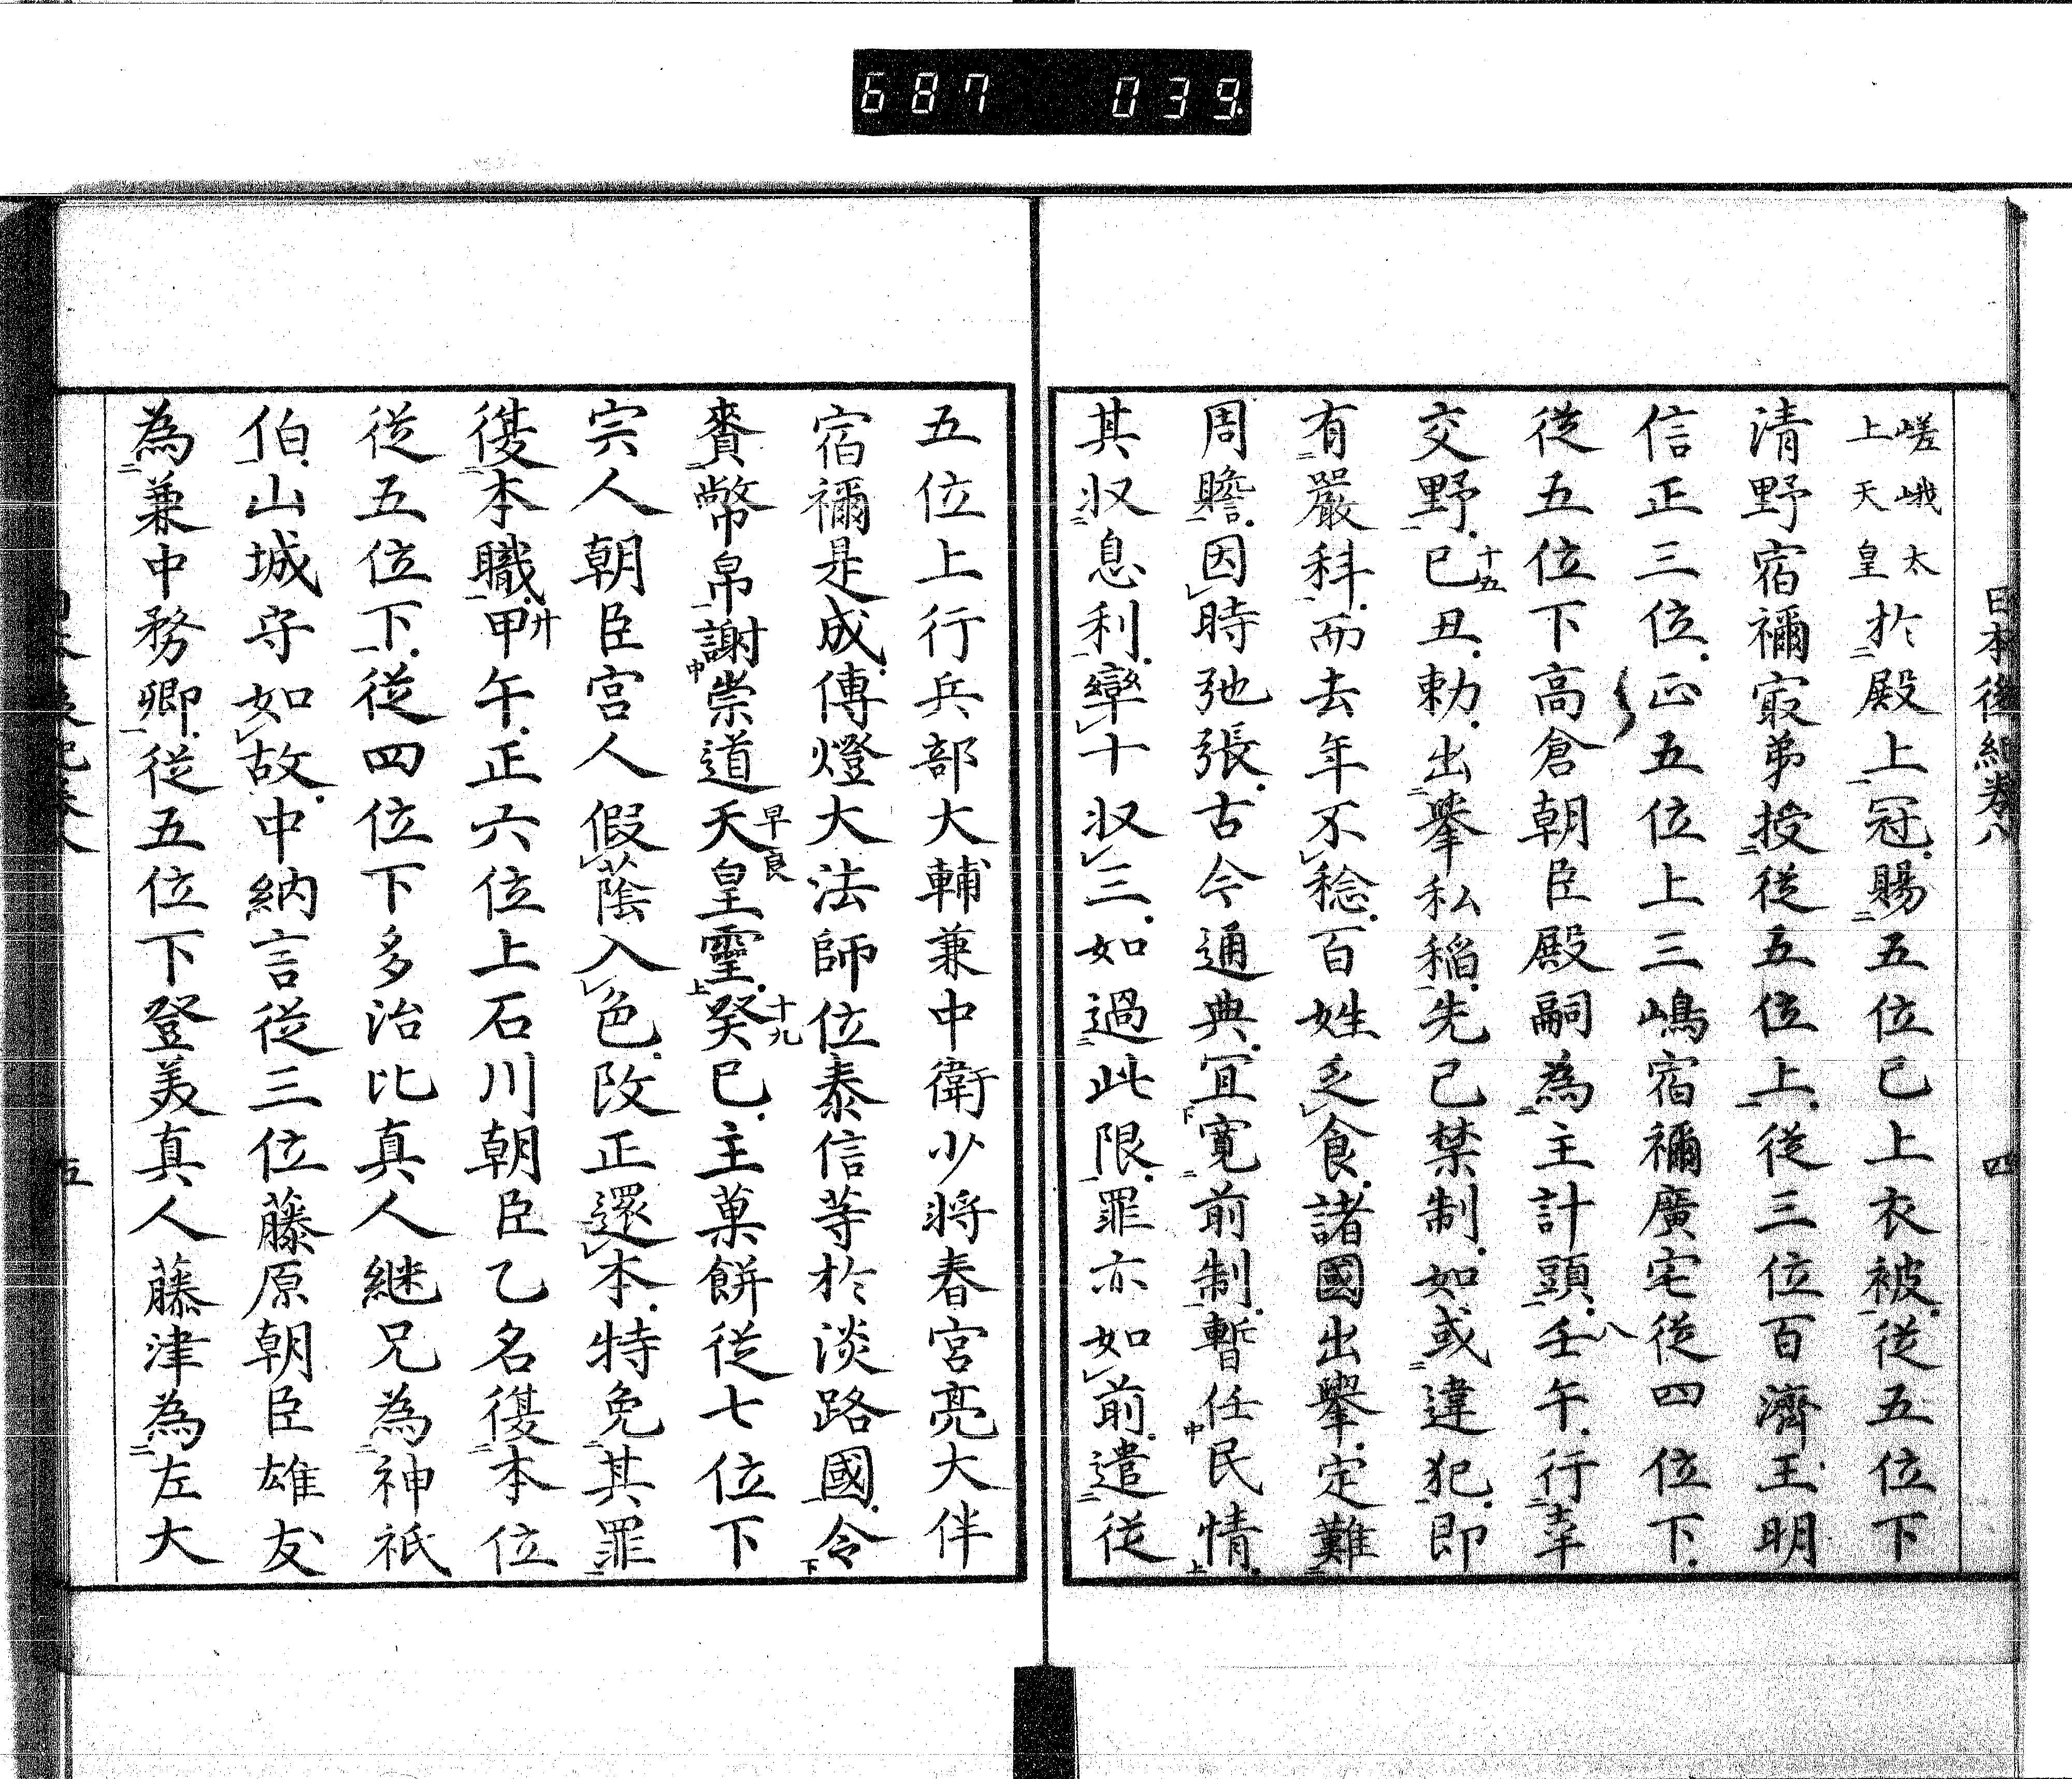 687 039
日本後紀卷八 四
嵯峨太上天皇於殿上冠賜五位已上衣被從五位下
清野宿禰㝡弟授從五位上從三位百濟王明
信正三位正五位上三嶋宿禰廣宅從四位下
從五位下高倉朝臣殿嗣為主計頭壬午八行幸
交野己丑十五勅出擧私稲先已禁制如或違犯即
有嚴科而去年不稔百姓乏食諸國出擧定難
周贍因時弛張古今通典宜寛前制暫任民情
其収息利率十収三如過此限罪亦如前遣從
五位上行兵部大輔兼中衛少將春宮亮大伴
宿禰是成傳燈大法師位泰信等於淡路國令
賷幣帛謝崇道天皇早良霊癸巳十九主菓餅從七位下
宍人朝臣宮人假蔭入色改正還本特免其罪
復本職甲午廾正六位上石川朝臣乙名復本位
從五位下從四位下多治比真人継兄為神祇
伯山城守如故中納言從三位藤原朝臣雄友
為兼中務卿從五位下登美真人藤津為左大
五